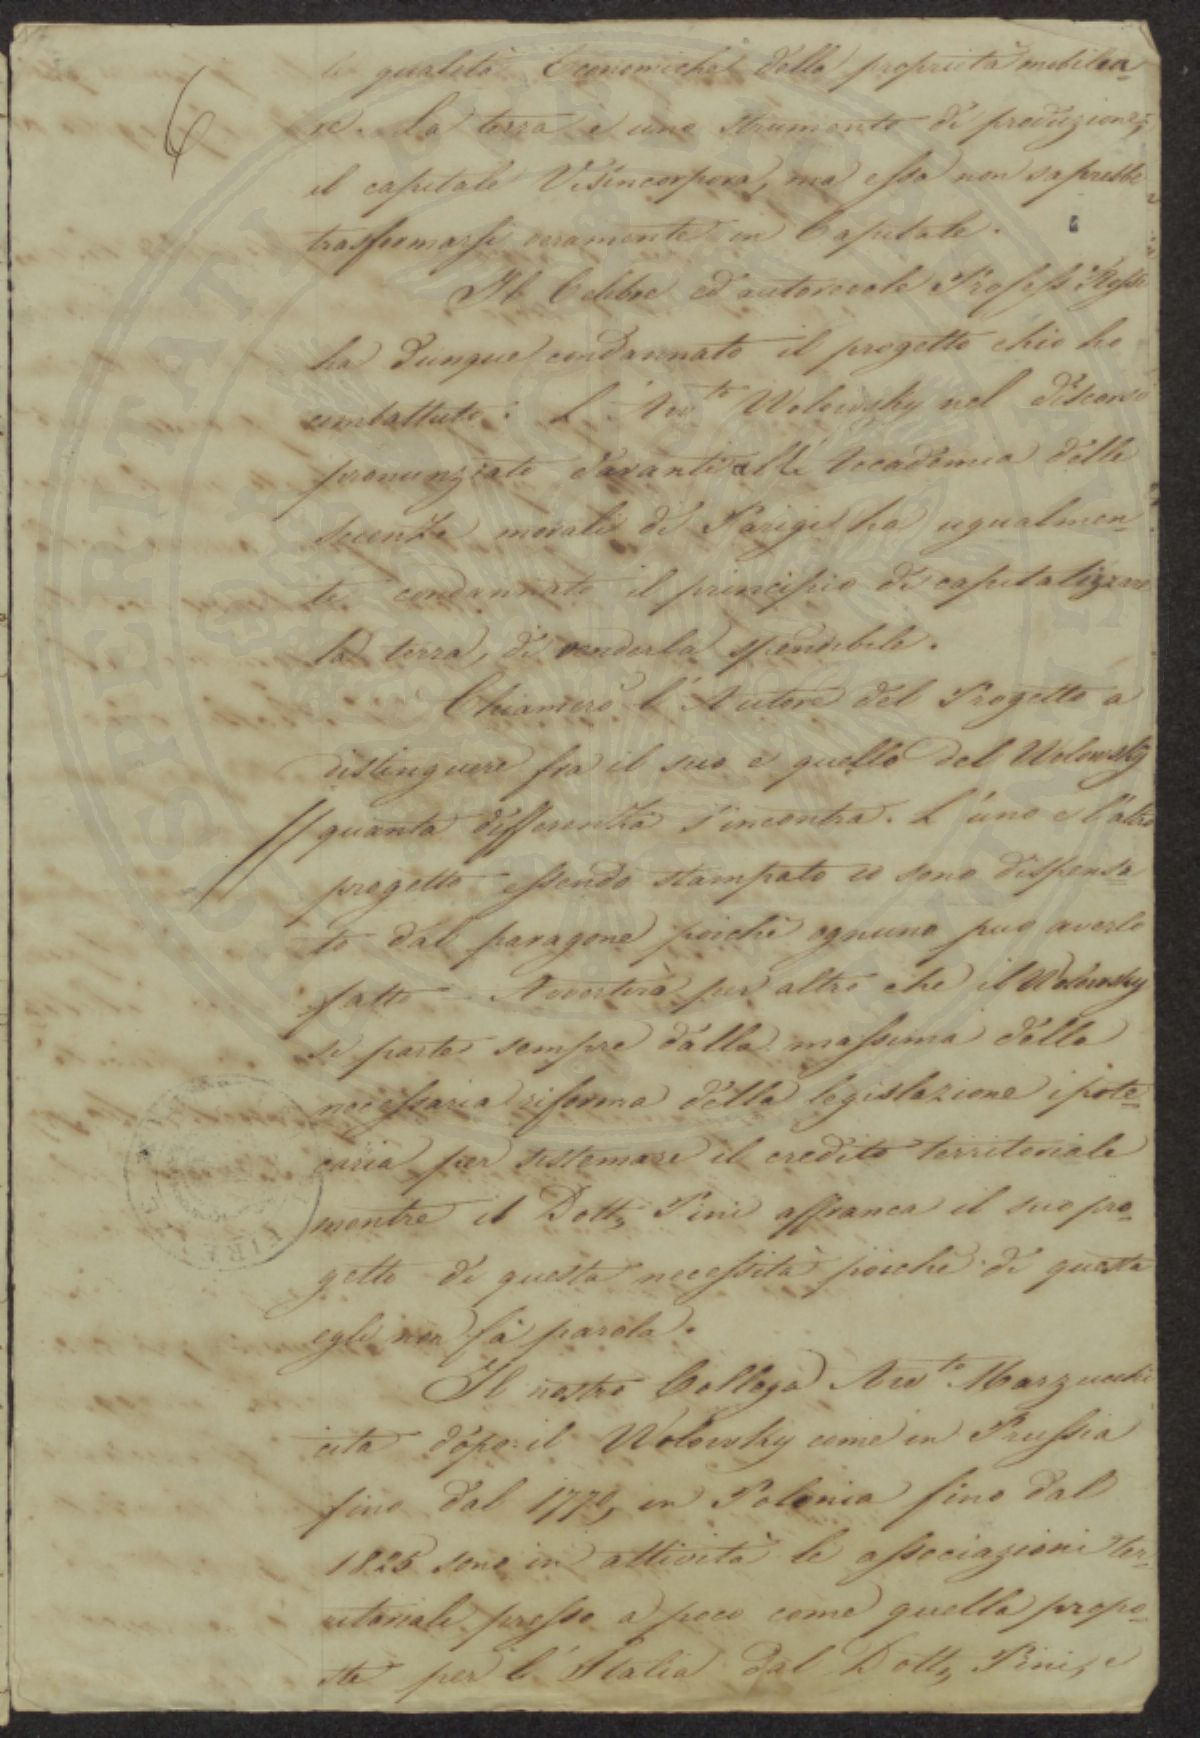 6
le qualità Economiche della proprietà mobilea=
re. La terra è uno strumento di produzione;
il capitale Vi s'incorpora, ma essa non saprebbe
trasformarsi veramente in Capitale.
Il Celebre ed autorevole Profess. Rossi
ha dunque condannato il progetto ch'io ho
combattuto: L'Avv.to Wolowsky nel discorso
pronunziato davanti all'Accademia delle
scienze morali di Parigi ha ugualmen=
te condannato il principio di capitalizzare
la terra, di renderla spendibile.
Chiamerò l'Autore del Progetto a
distinguere fra il suo e quello del Wolowsky
quanta differenza s'incontra. L'uno e l'altro
progetto essendo stampato io sono dispensa=
to dal paragone poichè ognuno può averlo
fatto - Avvertirà per altro che il Wolowsky
si parte sempre dalla massima della
necessaria riforma della legislazione ipote=
caria per sistemare il credito territoriale
mentre il Dott. Pini affranca il suo pro=
getto di questa necessità poichè di questa
egli non fà parola.
Il nostro Collega Avv.to Marzucchi
cita dopo il Wolowsky come in Prussia
fino dal 1770, in Polonia fino dal
1825 sono in attività le associazioni ter=
ritoriale presso a poco come quella propo=
sta per l'Italia dal Dott. Pini, e